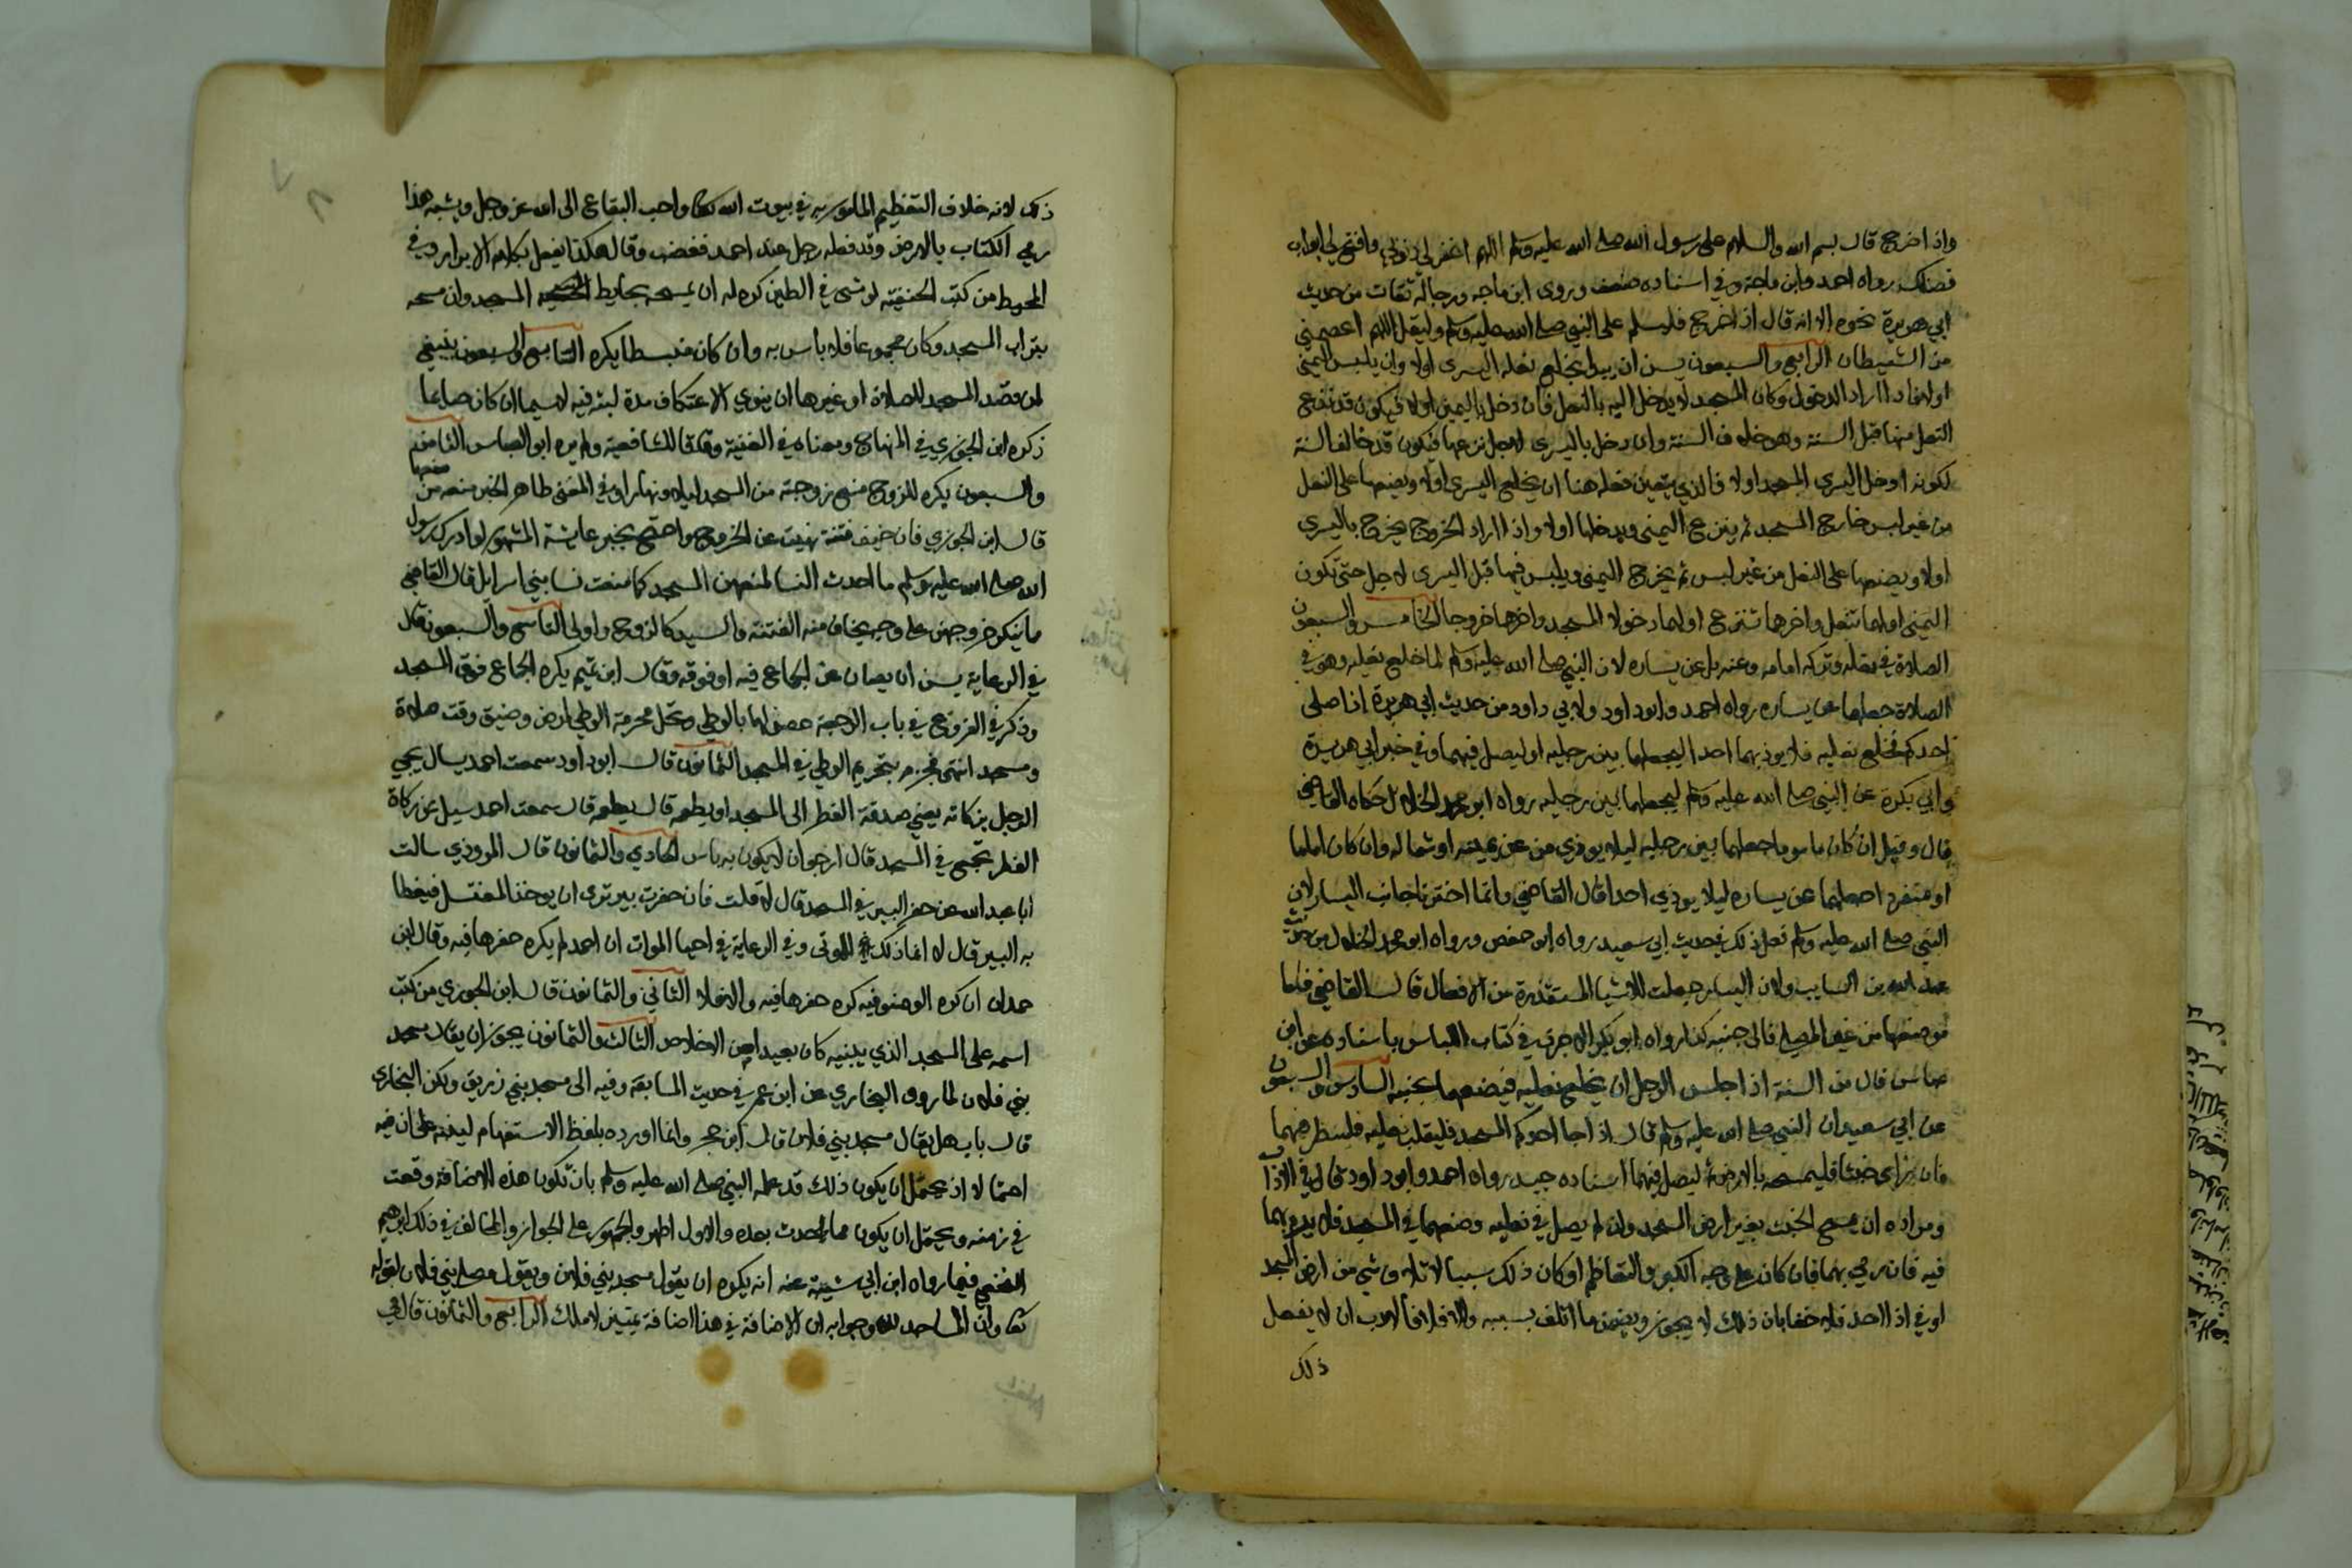 واذا خرج قال بسم الله والسلام على رسول الله صلى الله عليه وسلم اللهم اغفر لي ذنوبي وافتح لي ابواب
فضلك رواه احمد وابن ماجة وفي اسناده ضعف وروى ابن ماجه ورجاله ثقات من حديث
ابي هريرة نحوه الا انه قال اذا خرج فليسلم على النبي صلى الله عليه وسلم وليقل اللهم اعصمني
من الشيطان الرابع والسبعون يسن ان يبدا بخلع نعله اليسرى اولا وان يلبس اليمنى
اولا فاذا اراد الدخول وكان المسجد لا يدخل اليه بالنعل فان دخل باليمين اولا فيكون قد نزع
النعل منها قبل السنة وهو خلاف السنة وان دخل باليسرى لاجل نزعها فيكون قد خالف السنة
لكونه ادخل اليسرى المسجد اولا فالذي يتعين فعله هنا ان يخلع اليسرى اولا ويضعها على النعل
من غير لبس خارج المسجد ثم ينزع اليمنى ويدخلها اولا واذا اراد الخروج يخرج باليسرى
اولا ويضعها على النعل من غير لبس ثم يخرج اليمنى ويلبس فيها قبل اليسرى لاجل حتى تكون
اليمنى اولهما تنعل واخرهما تنزع اولهما دخولا المسجد واخرها خروجا الخامس والسبعون
الصلاة في نعله وتركه امامه وعنه بل عن يساره لان النبي صلى الله عليه وسلم لما خلع نعليه وهو في
الصلاة جعلهما عن يساره رواه احمد وابو داود ولابي داود من حديث ابي هريرة اذا صلى
احدكم فخلع نعليه فلا يوذ بهما احدا ليجعلهما بين رجليه او ليصل فيهما وفي خبر ابي هريرة
وابي بكرة عن النبي صلى الله عليه وسلم ليجعلهما بين رجليه رواه ابو محمد الخلال حكاه القاضي
قال وقيل ان كان ماموما جعلهما بين رجليه ليلا يوذي من عن يمينه او شماله وان كان اماما
او منفردا جعلهما عن يساره ليلا يوذي احدا قال القاضي وانما اخترنا جانب اليسار لان
النبي صلى الله عليه وسلم فعل ذلك في حديث ابي سعيد رواه ابو حفص ورواه ابو محمد الخلال من حديث
عبد الله بن السايب ولان اليسار جعلت للاشيا المستقذرة من الافعال قال القاضي فاما
موضعها من غير المصلي فالى جنبه كذا رواه ابو بكر الاجري في كتاب اللباس باسناده عن ابن
عباس قال من السنة اذا جلس الرجل ان يخلع نعليه فيضعهما بجنبه السادس والسبعون
عن ابي سعيد ان النبي صلى الله عليه وسلم قال اذا جا احدكم المسجد فليقلب نعليه فلينظر فيهما
فان راى خبثا فليمسحه بالارض ثم ليصل فيهما اسناده جيد رواه احمد وابو داود قال في الاداب
ومراده ان يمسح الخبث بغير ارض المسجد وان لم يصل في نعليه وضعهما في المسجد فلا يرم بهما
فيه فان رمي بهما فان كان على وجه الكبر والتعاظم او كان ذلك سببا لاتلاف شي من ارض المسجد
او في اذا احد فلا خفا بان ذلك لا يجوز ويضمن ما اتلف بسببه والا فلا فالادب ان لا يفعل
ذلك
ذلك لانه خلاف التعظيم المامور به في بيوت الله تعالى واحب البقاع الى الله عز وجل ويشبه هذا
رمي الكتاب بالارض وقد فعله رجل عند احمد فغضب وقال هكذا يفعل بكلام الابرار وفي
المحيط من كتب الحنفية لو مشى في الطين كره له ان يمسحه بحايط المسجد وان مسحه
بتراب المسجد وكان مجموعا فلا باس به وان كان منبسطا يكره السابع والسبعون ينبغي
لمن قصد المسجد للصلاة او غيرها ان ينوي الاعتكاف مدة لبثه فيه لاسيما ان كان صايما
ذكره ابن الجوزي في المنهاج ومعناه في الغنية وفاقا للشافعية ولم يره ابو العباس الثامن
والسبعون يكره للزوج منع زوجته من المسجد ليلا ونهارا وفي المغنى ظاهر الخبر منعه من منعها
قال ابن الجوزي فان خيف فتنة نهيت عن الخروج واحتج بخبر عايشة المشهور لو ادرك رسول
الله صلى الله عليه وسلم ما احدث النسا لمنعهن المسجد كما منعت نسا بني اسرايل قال القاضي
ما ينكر خروجهن على وجه يخاف منه الفتنة والسيد كالزوج واولى التاسع والسبعون قال
في الرعاية يسن ان يصان عن الجماع فيه او فوقه وقال ابن تميم يكره الجماع فوق المسجد
وذكر في الفروع في باب الرجعة حصولها بالوطي وتحل محرمة الوطي لمرض وضيق وقت صلاة
ومسجد انتهى فجزم بتحريم الوطي في المسجد الثمانون قال ابو داود سمعت احمد يسال يجي
الرجل بزكاته يعني صدقة الفطر الى المسجد او يطعمه قال يطعمه قال سمعت احمد سيل عن زكاة
الفطر تجمع في المسجد قال ارجو ان لا يكون به باس الحادي والثمانون قال المروذي سالت
ابا عبد الله عن حفر البير في المسجد قال لا قلت فان حفرت بير ترى ان يوخذ المغتسل فيغطا
به البير قال لا انما ذلك للموتى وفي الرعاية في احيا الموات ان احمد لم يكره حفرها فيه وقال ابن
حمدان ان كره الوضو فيه كره حفرها فيه والا فلا الثاني والثمانون قال ابن الجوزي من كتب
اسمه على المسجد الذي يبنيه كان بعيدا من الاخلاص الثالث والثمانون يجوز ان يقال مسجد
بني فلان لما روى البخاري عن ابن عمر في حديث المسابقة وفيه الى مسجد بني زريق ولكن البخاري
قال باب هل يقال مسجد بني فلان قال ابن حجر وانما اورده بلفظ الاستفهام لينبه على ان فيه
احتمالا اذ يحتمل ان يكون ذلك قد علمه النبي صلى الله عليه وسلم بان تكون هذه الاضافة وقعت
في زمنه ويحتمل ان يكون مما احدث بعده والاول اظهر والجمهور على الجواز والمخالف في ذلك ابراهيم
النخعي فيما رواه ابن ابي شيبة عنه انه يكره ان يقول مسجد بني فلان ويقول مصلى بني فلان لقوله
تعالى وان المساجد لله وجوابه ان الاضافة في هذا اضافة تمييز لا ملك الرابع والثمانون قال في